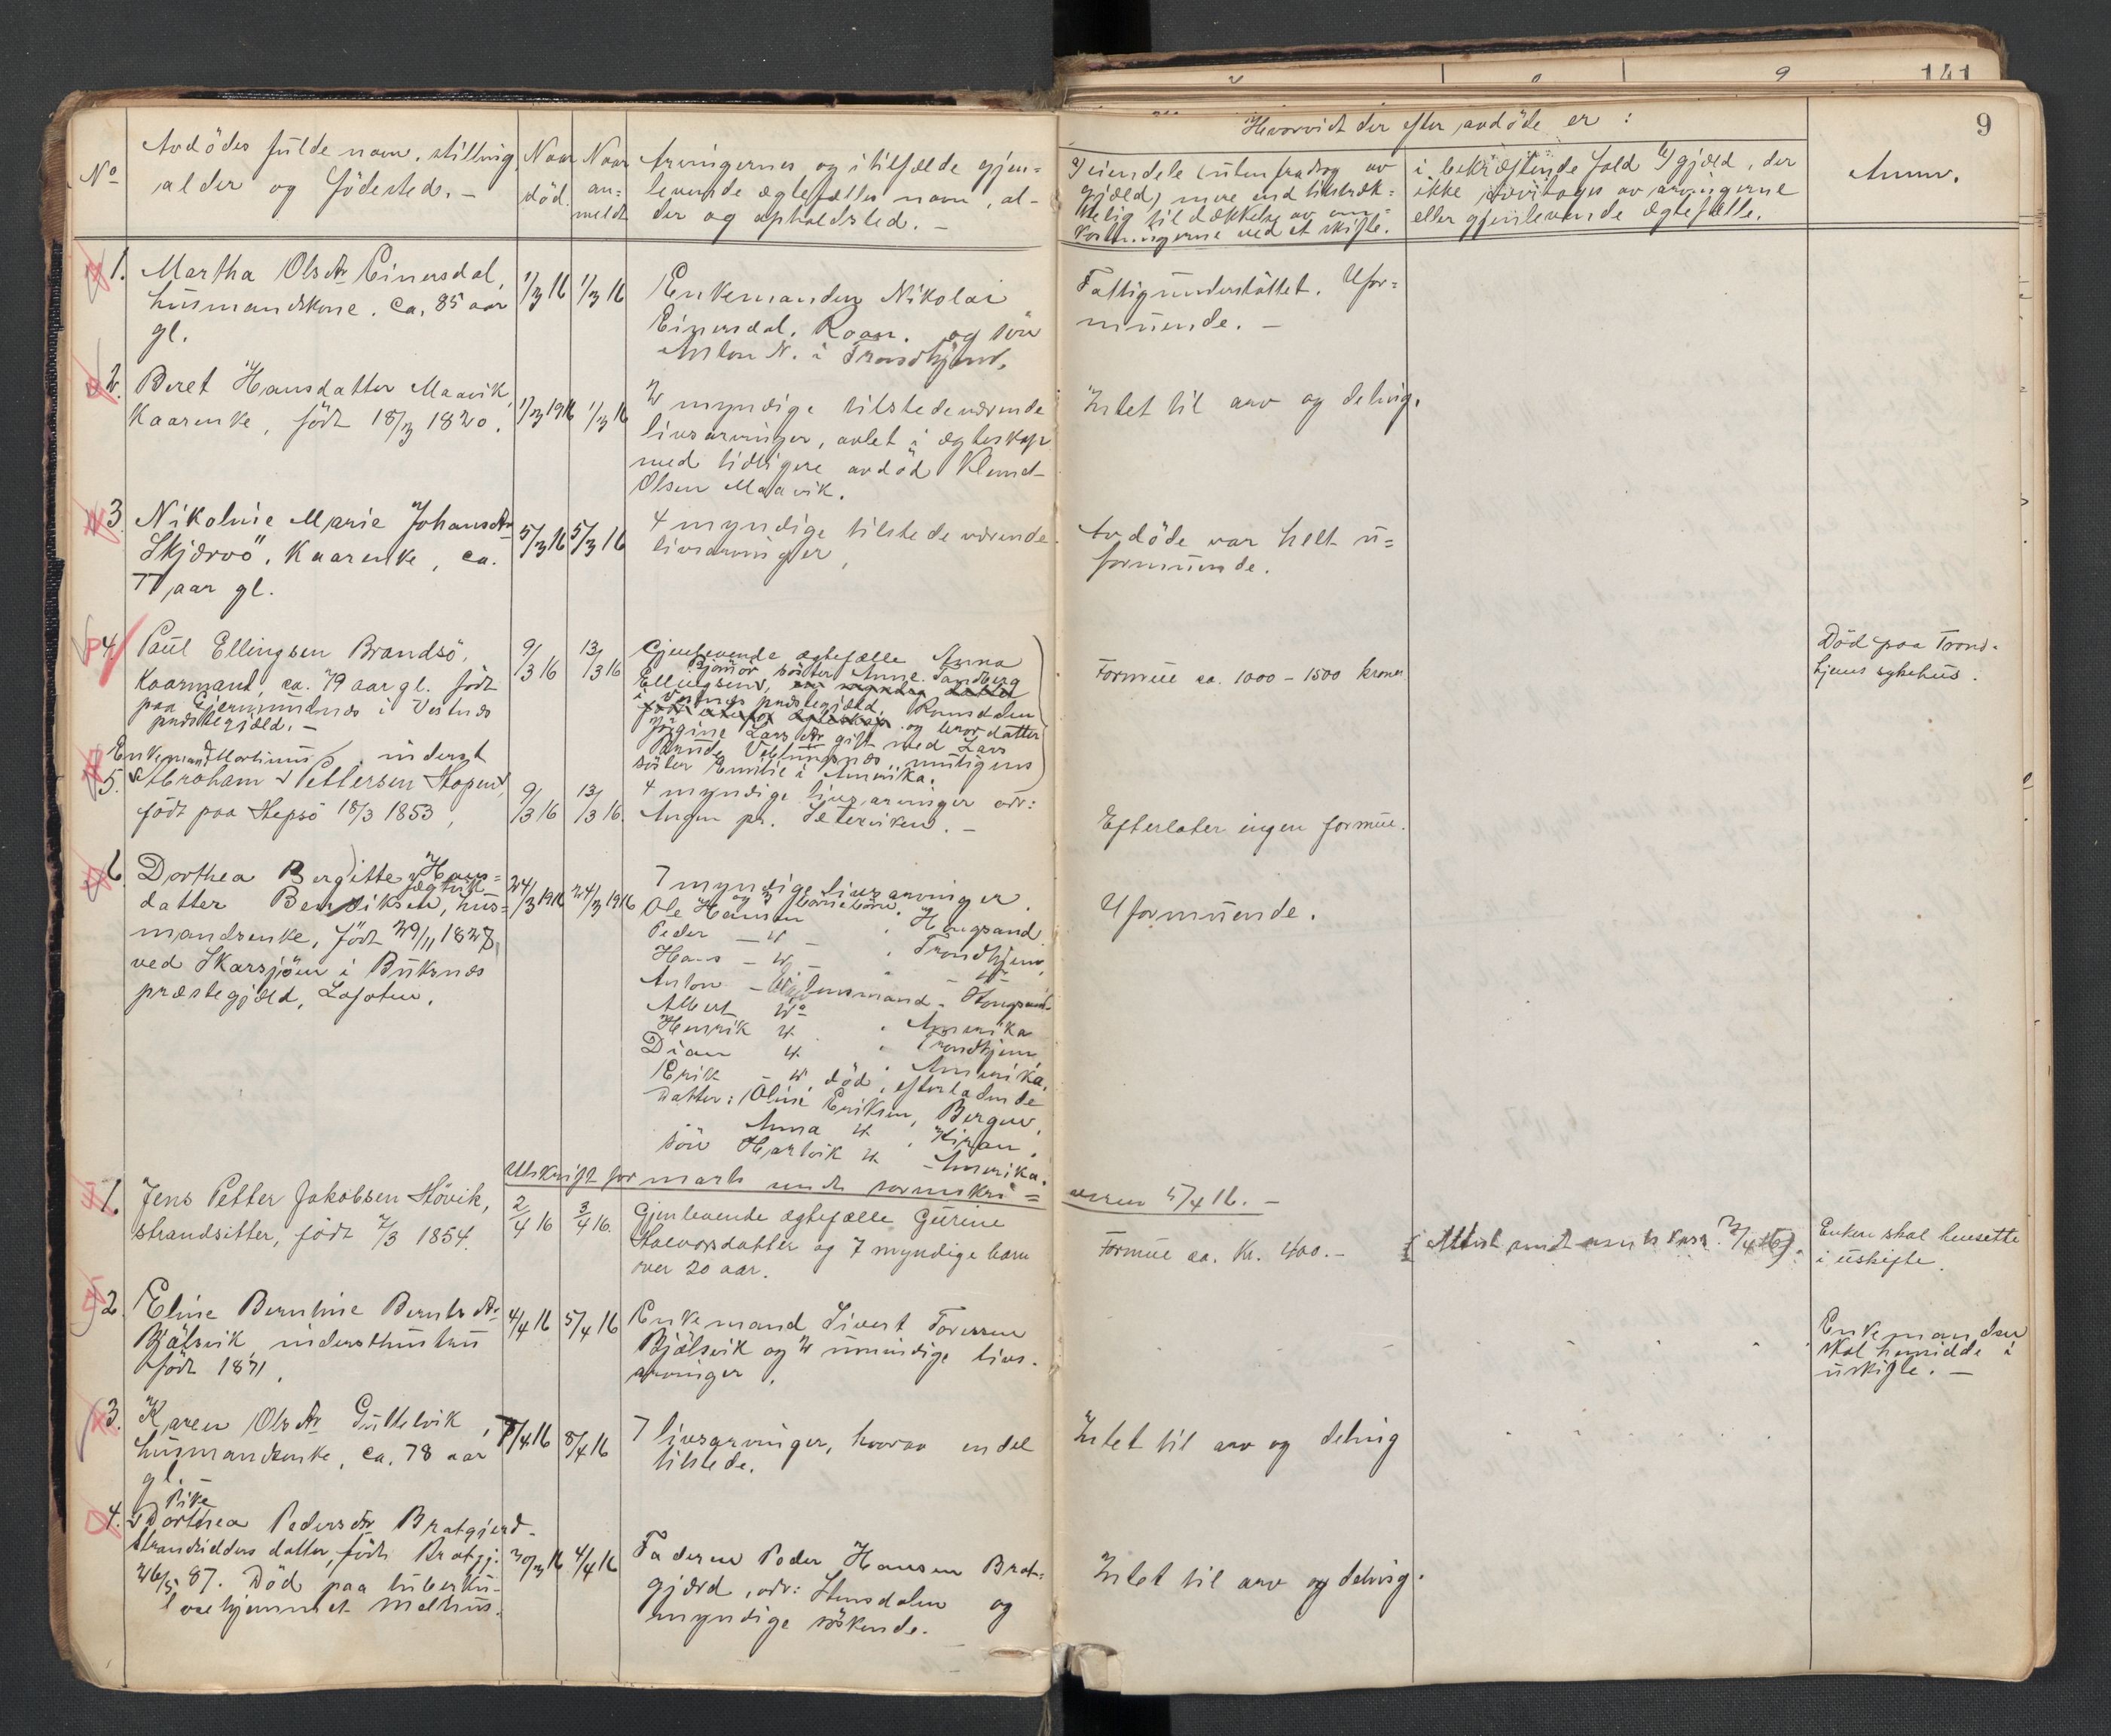 141
9
No
Avdödes fulde navn, stilling,
alder og födested. –
Naar
död.
Naar
an-
meldt
Arvingernes og i tilfælde gjen-
levende ægtefælles navn, al-
der og opholdsted. –
Hvorvidt der efter avdöde er :
a) eiendele (uten fradrag av
gjæld) mere end tilstræk-
kelig til dækkelse av om-
kostningerne ved et skifte.
i bekræftende fald b) gjæld, der
ikke overtages av arvingerne
eller gjenlevende ægtefælle.
Anm.
1. Martha Olsdtr Einersdal,
husmandskone. ca. 85 aar
gl.
1/3 16
1/3 16
Enkemanden Nikolai
Einersdal, Roan. og sön
Anton N. i Trondhjem.
Fattigunderstöttet. Ufor-
muende. –
2. Beret Hansdatter Maavik,
Kaarenke, födt 18/3 1820.
1/3 1916
1/3 16
2 myndige tilstedeværende
livsarvinger, avlet i ægteskap
med tidligere avdöd Klemet
Olsen Maavik.
Intet til arv og deling.
3. Nikoline Marie Johansdtr
Skjærvö, Kaarenke, ca.
77 aar gl.
5/3 16
5/3 16
4 myndige tilstedeværende
livsarvinger,
Avdöde var helt u-
formuende.
4. Paul Ellingsen Brandsö,
Kaarmand, ca. 79 aar gl. födt
paa Gjermundnæs i Vestnæs
præstegjæld. –
9/3 16
13/3 16
Gjenlevende ægtefælle Anna
Björnör söster Anne Sandberg
Ellingsen,
i Vestnæs præstegjæld, Romsdalen
og brordatter
Jörgine Larsdtr gift med Lars
Veblungsnæs, muligens
söster Emilie i Amerika.
Formue ca. 1000 – 1500 kroner
Död paa Trond-
hjems sykehus.
Enkemand Martinus inderst
5. Abraham Pettersen Hopen,
födt paa Hepsö 18/3 1853,
9/3 16
13/3 16.
4 myndige livsarvinger adr:
Angen pr. Sæterviken. –
Efterlater ingen formue.
6. Dorthea Bergitte Hans-
datter Bendiksen, hus-
mandsenke, födt 29/11 1827,
ved Skarsjöen i Buksnæs
præstegjæld, Lofoten.
24/3 1916
24/3 1916
7 myndige livsarvinger.
og 3 barnebörn.
Ole Hansen , Hongsand
Peder – " – , Trondhjem,
Hans – " –
Anton – " lensmand – Hongsand
Albert "
Henrik " , Amerika
Dian " , Trondhjem,
Erik – " död, efterladende Amerika.
datter: Oline Eriksen, Bergen,
Anna " , Kiran,
sön Hartvik " – Amerika.
Uformuende.
Utskrift formark sendt sorenskri-
veren 5/4 16. –
1. Jens Petter Jakobsen Hövik,
strandsitter, födt 7/3 1854.
2/4 16
3/4 16.
Gjenlevende ægtefælle Gurine
Halvorsdatter og 7 myndige barn
over 20 aar.
Formue ca. Kr. 400. –
Enken skal hensitte
i uskifte.
2. Eline Bernhine Berntsdtr
Bjölsvik, indersthustru
födt 1871,
4/4 16
5/4 16
Enkemand Sivert Toressen
Bjölsvik og 2 umyndige livs-
arvinger.
Enkemanden
skal hensidde i
uskifte. –
3. Karen Olsdtr Gultelvik,
husmandsenke, ca. 78 aar
gl. –
7/4 16
8/4 16
7 livsarvinger, hvorav endel
tilstede.
Intet til arv og deling
Pike
4. Dorthea Pedersdtr Bratgjerd,
strandsidders datter, födt Bratgj.
26/5 87. Död paa tuberku-
losehjemmet Melhus.
30/3 16
4/4 16
Faderen Peder Hansen Brat-
gjærd, adr: Stensdalen og
myndige söskende.
Intet til arv og deling.